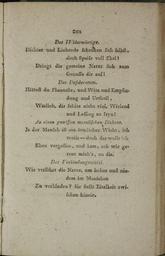 202
Das Widerwärtige.
Dichter und Liebende schenken sich selbst,
doch Speise voll Ekel!
Dringt die gemeine Natur sich zum
Genusse die auf!
Das Desideratum.
Hättest du Phantasie, und Witz und Empfin-
dung und Urtheil,
Wahrlich, dir fehlte nicht viel, Wieland
und Lessing zu seyn!
An einen gewissen moralischen Dichter.
Ja der Mensch ist ein ärmlicher Wicht, ich
weiß — doch das wollt' ich
Eben vergessen, und kam, ach wie ge-
reut mich's, zu dir.
Das Verbindungsmittel.
Wie verfährt die Natur, um hohes und nie-
dres im Menschen
Zu verbinden? sie stellt Eitelkeit zwi-
schen hinein.